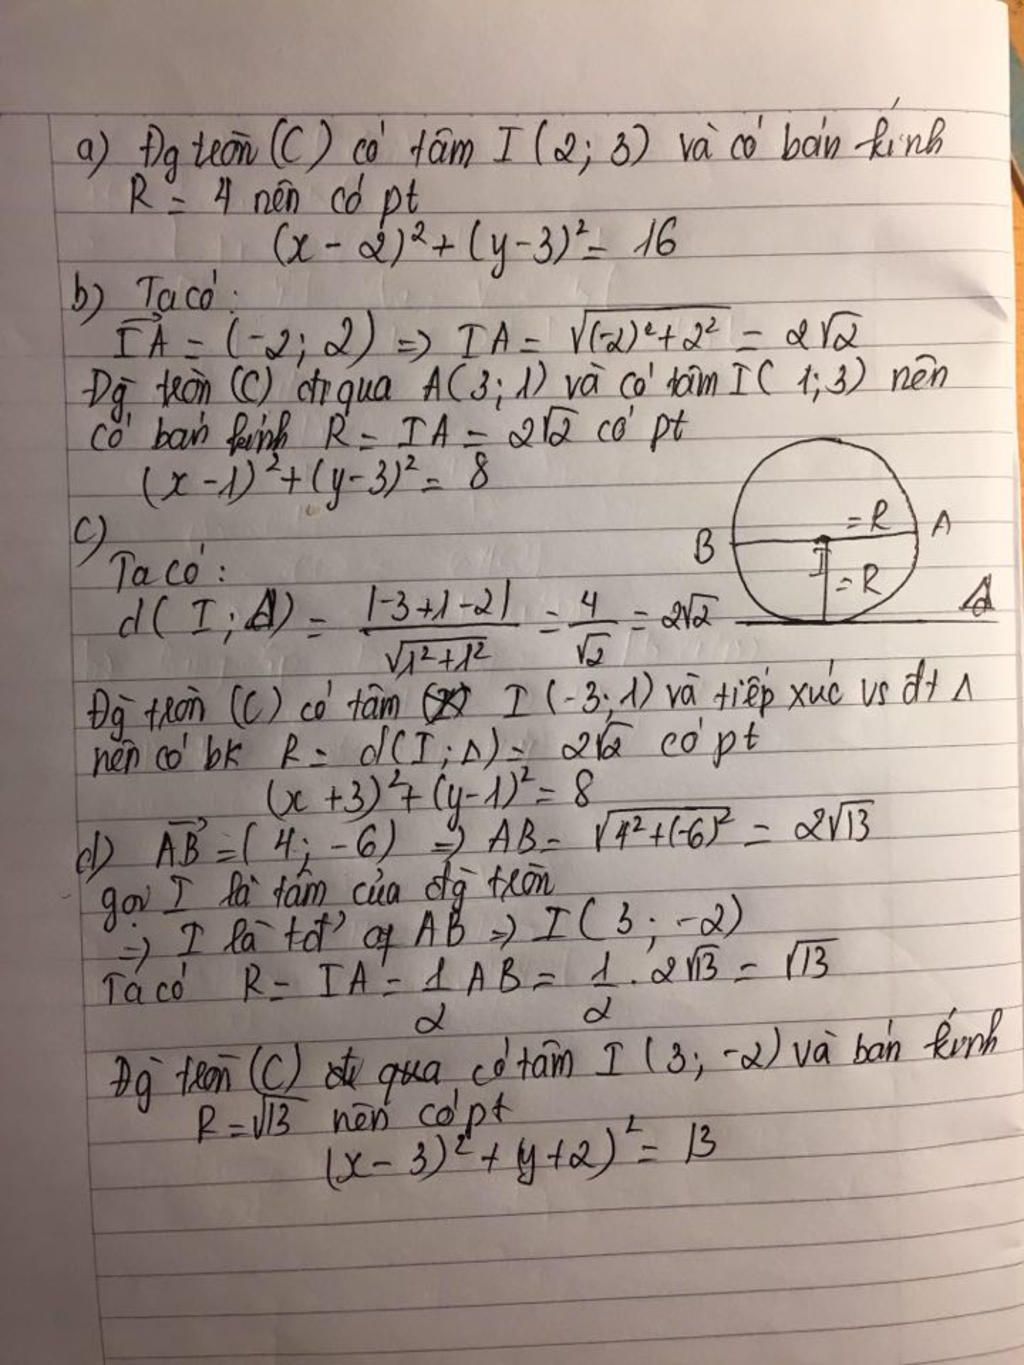 a) Đg tròn (C) có tâm I (2; 3) và có bán kính
R = 4 nên có pt
(x - 2)² + (y - 3)² = 16
b) Ta có:
$\overrightarrow{IA}$ = (-2; 2) => IA = √((-2)² + 2²) = 2√2
Đg tròn (C) đi qua A(3; 1) và có tâm I( 1; 3) nên
có bán kính R = IA = 2√2 có pt
(x - 1)² + (y - 3)² = 8
c)
Ta có:
d( I; Δ) = |-3 + 1 - 2| / √(1² + 1²) = 4/√2 = 2√2
B = R A
I = R
Δ
Đg tròn (C) có tâm I (-3; 1) và tiếp xúc vs đt Δ
nên có bk R = d(I; Δ) = 2√2 có pt
(x + 3)² + (y - 1)² = 8
d) $\overrightarrow{AB}$ = ( 4; -6) => AB = √(4² + (-6)²) = 2√13
gọi I là tâm của đg tròn
=> I là tđ AB => I ( 3; -2)
Ta có R = IA = 1/2 AB = 1/2 . 2√13 = √13
Đg tròn (C) có tâm I (3; -2) và bán kính
R = √13 nên có pt
(x - 3)² + (y + 2)² = 13